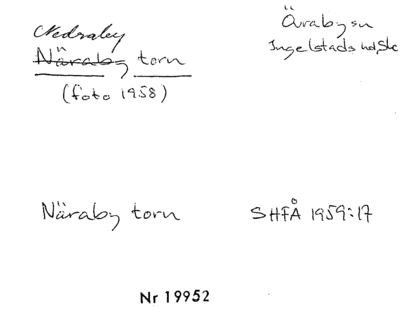 Nedraby
Näraby torn
(foto 1958)
Öraby sn
Ingelstads hd, Sk
Näraby torn
SHFÅ 1959:17
Nr 19952